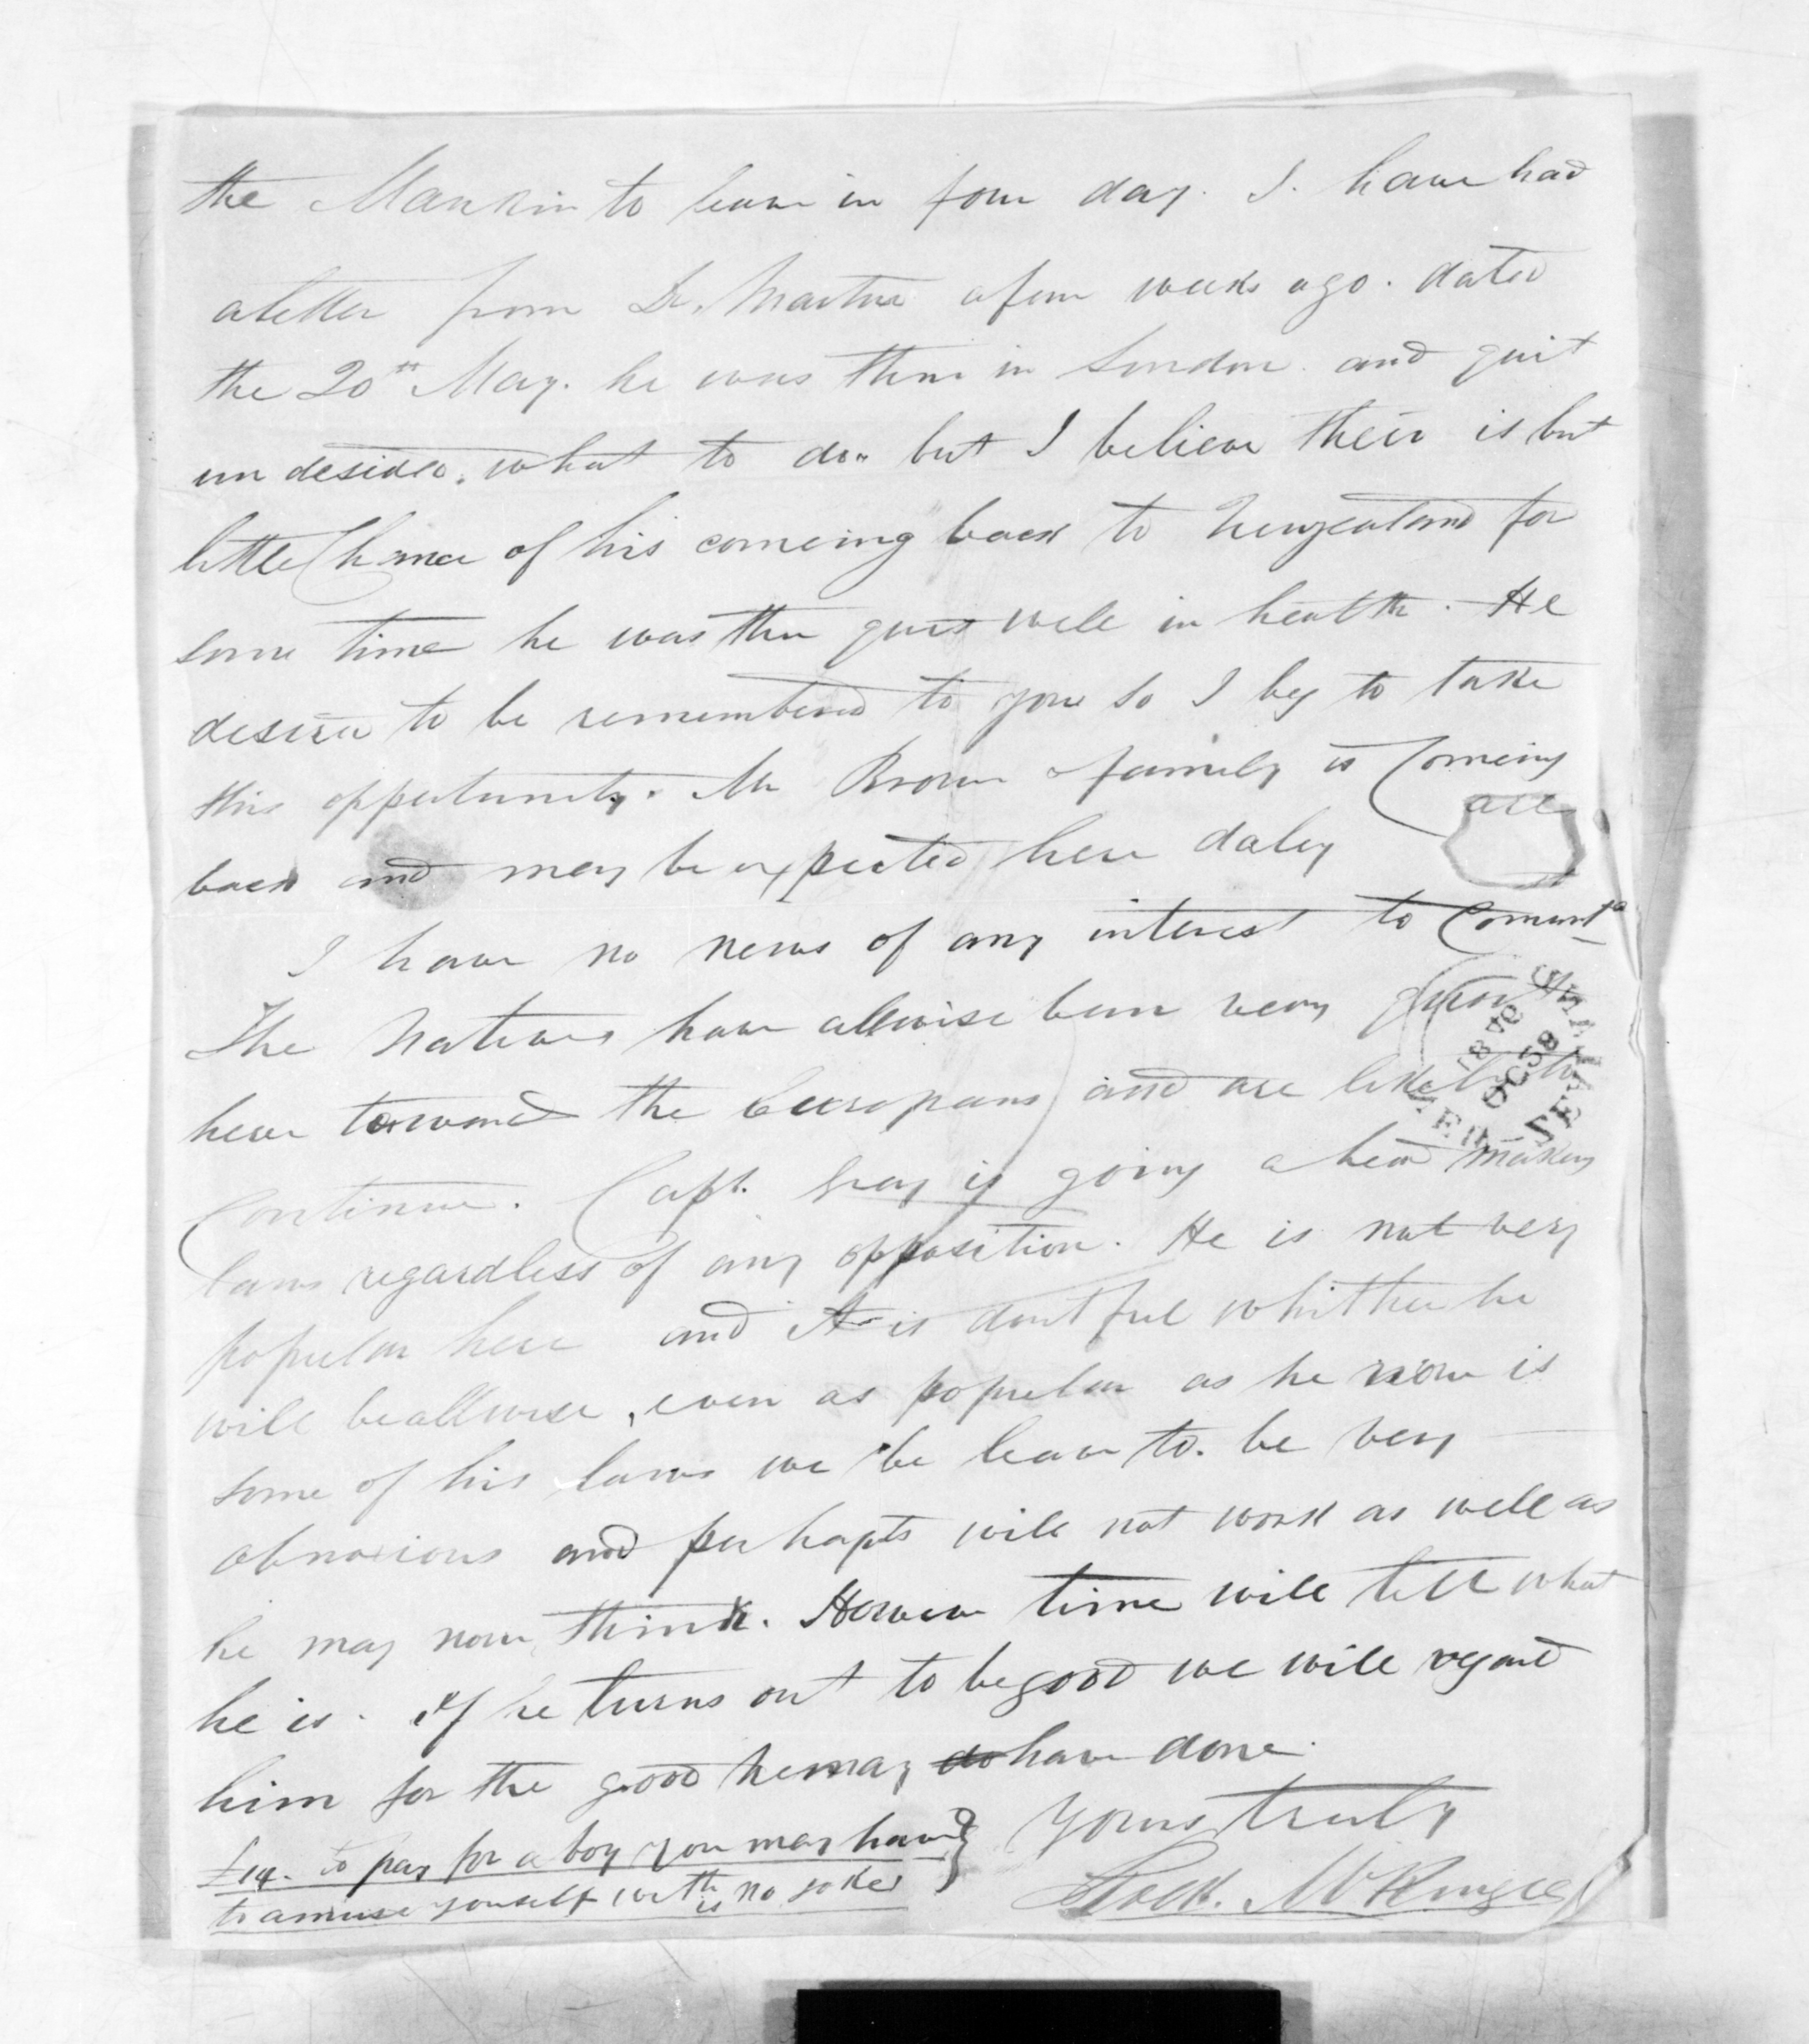 the Mankin to leave in four day. I. have had
a letter from Dr. Martin a few weeks ago. dated
the 20th May. he was then in London and quit
un desided. what to do. but I believe their is but
little Chance of his comeing back to Newzealand for
some time he was then quit well in health. He
desired to be remembered to you so I beg to take
this oppertunity. Mr Brown & family is Comeing
all
back and may be expected here daley
I have no news of any interest to
The Natives have allwise been very
here towards the Europeans and are likely to
Continue. Capt. Gray is going a head making
laws regardless of any opposition. He is not very
popular here and it is doutful whither he
will be allwise, even as popular as he now is
some of his laws we be leave to. be very
obnoxious and perhapts will not work as well as
he may now think. However time will tell what
he is. if he turns out to be good we will regard
him for the good he may do have done.
£14. to pay for a boy you may have
to amuse yourself with is no joke
Yours truly